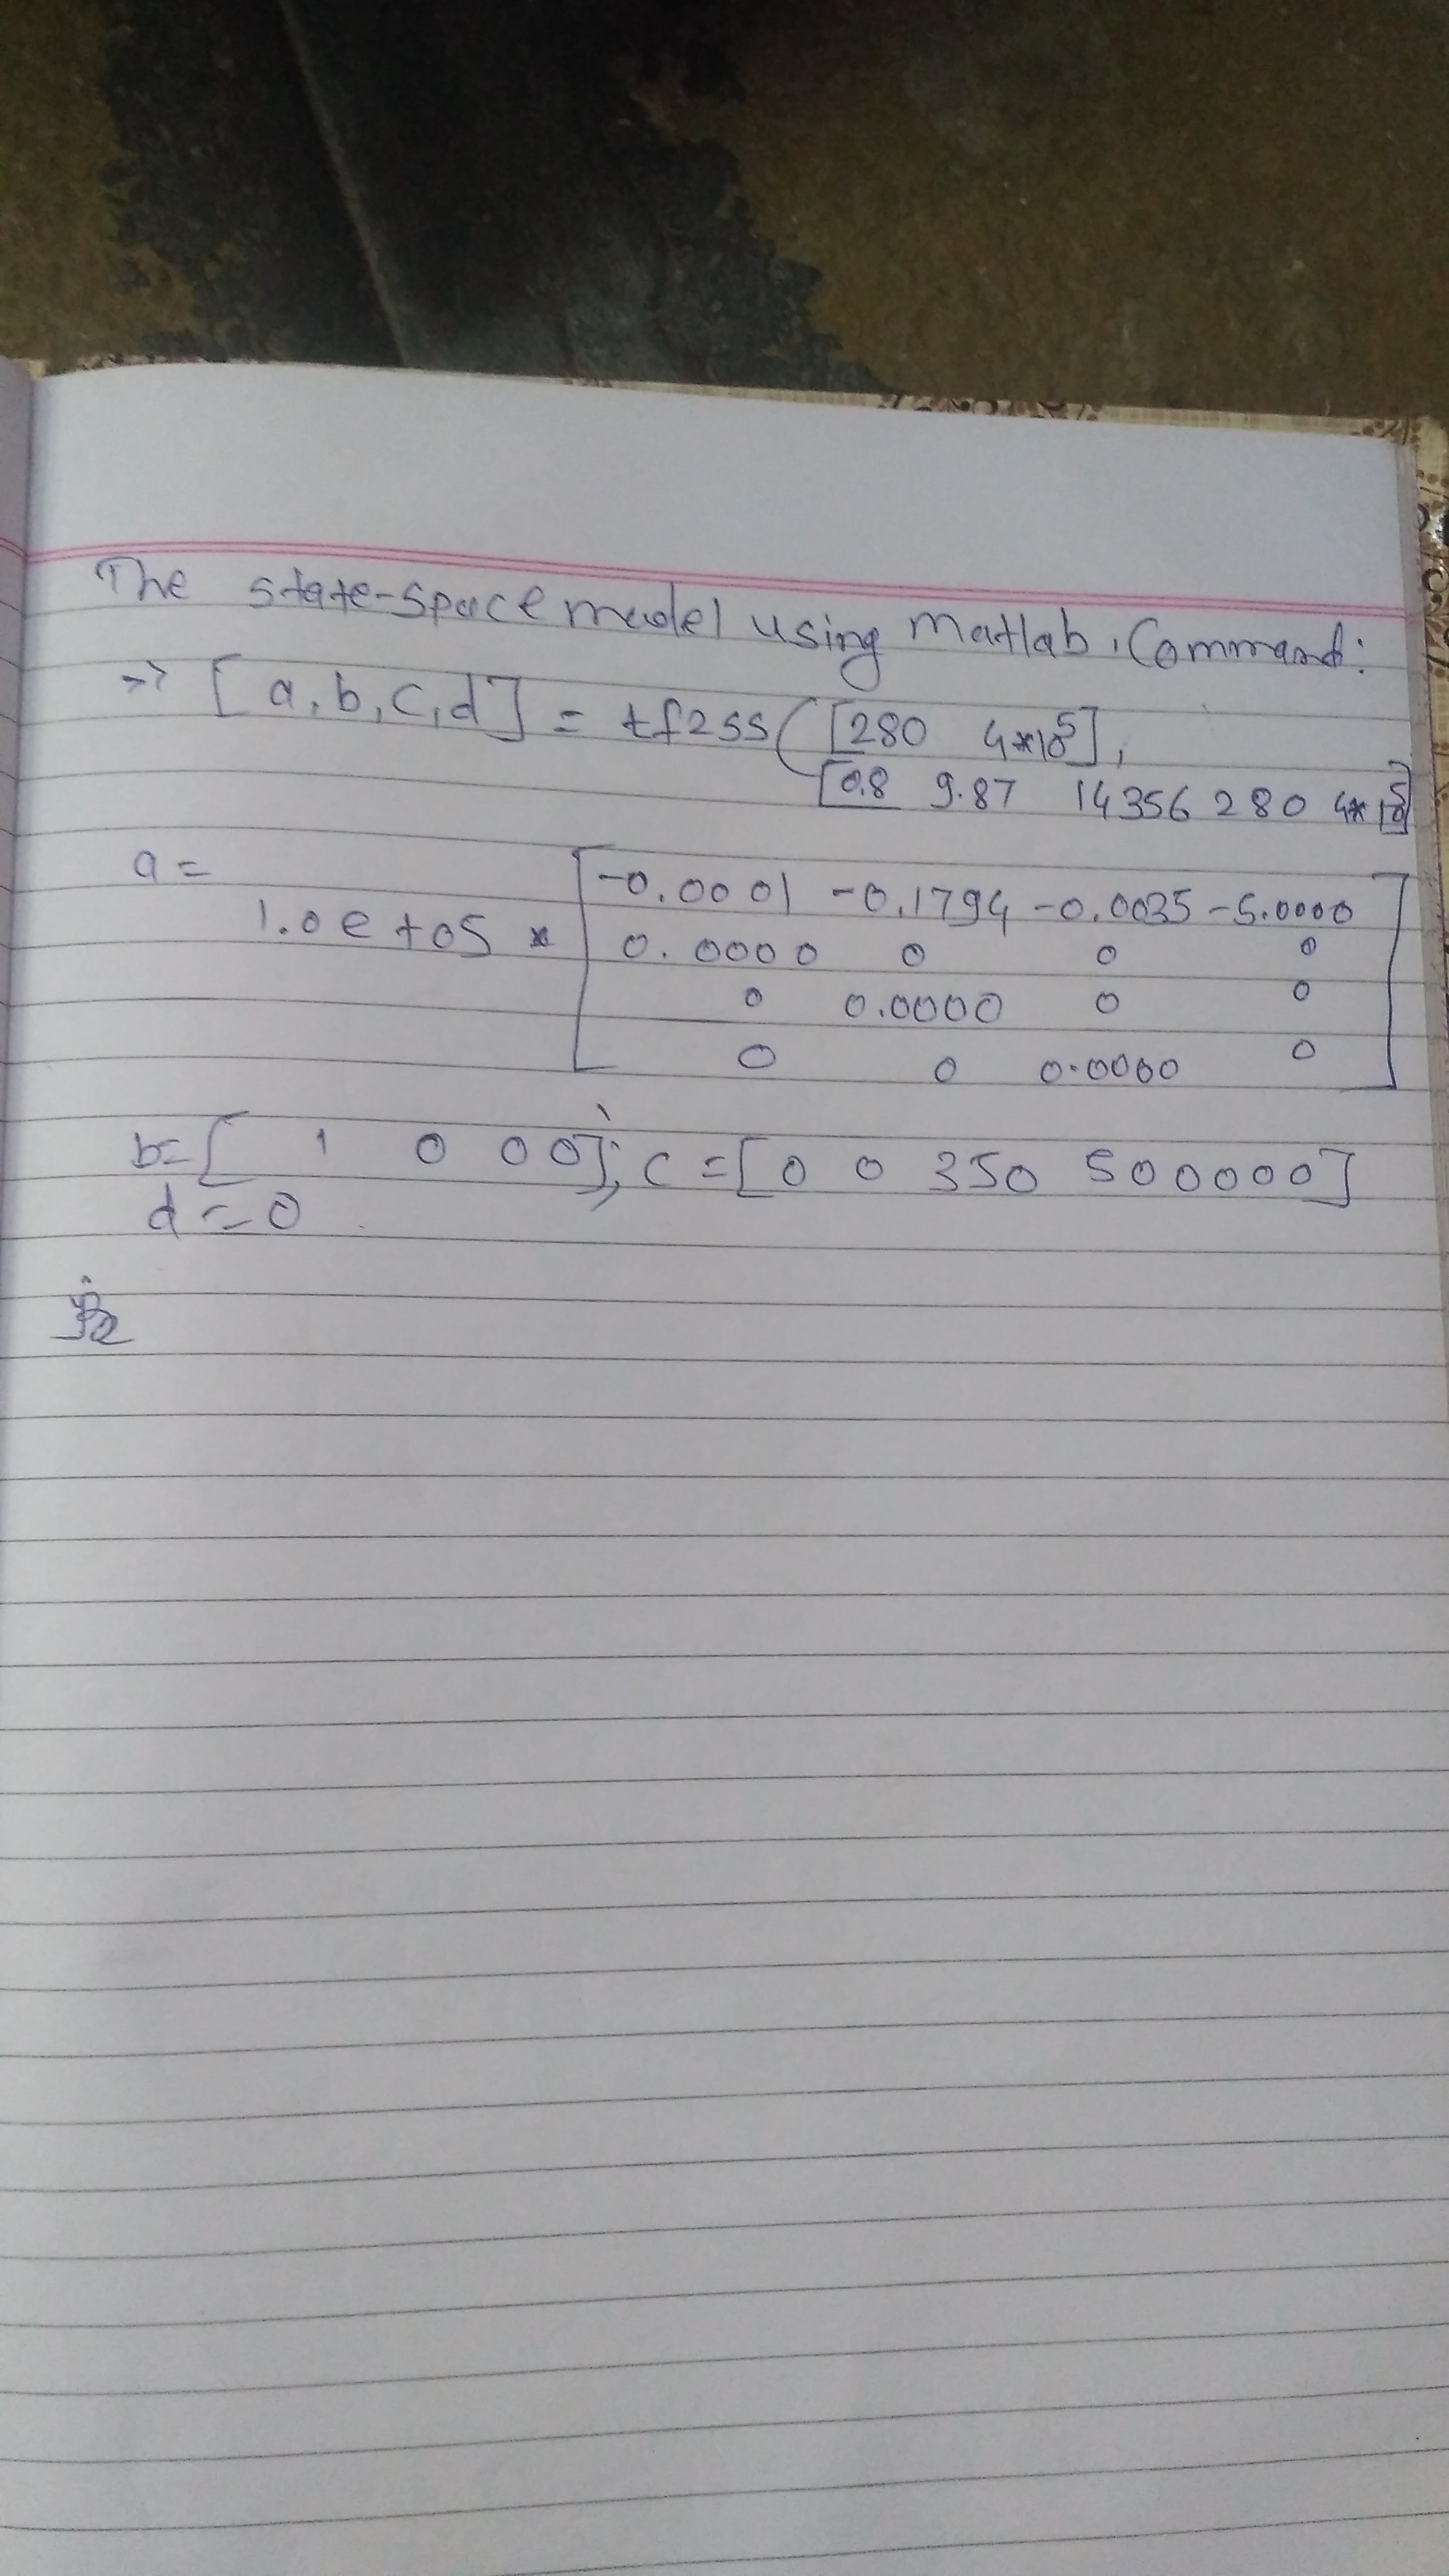 The state-space model using Matlab, Command:
→ [a, b, c, d] = tf2ss([280 4*10^5],
[0.8 9.87 14356 280 4*10^5]
a =
1.0e+05 * [-0.0001 -0.1794 -0.0035 -5.0000
0.0000 0 0 0
0 0.0000 0 0
0 0 0.0000 0]
b=[ 1 0 0 0]'; c=[0 0 350 500000]
d=0